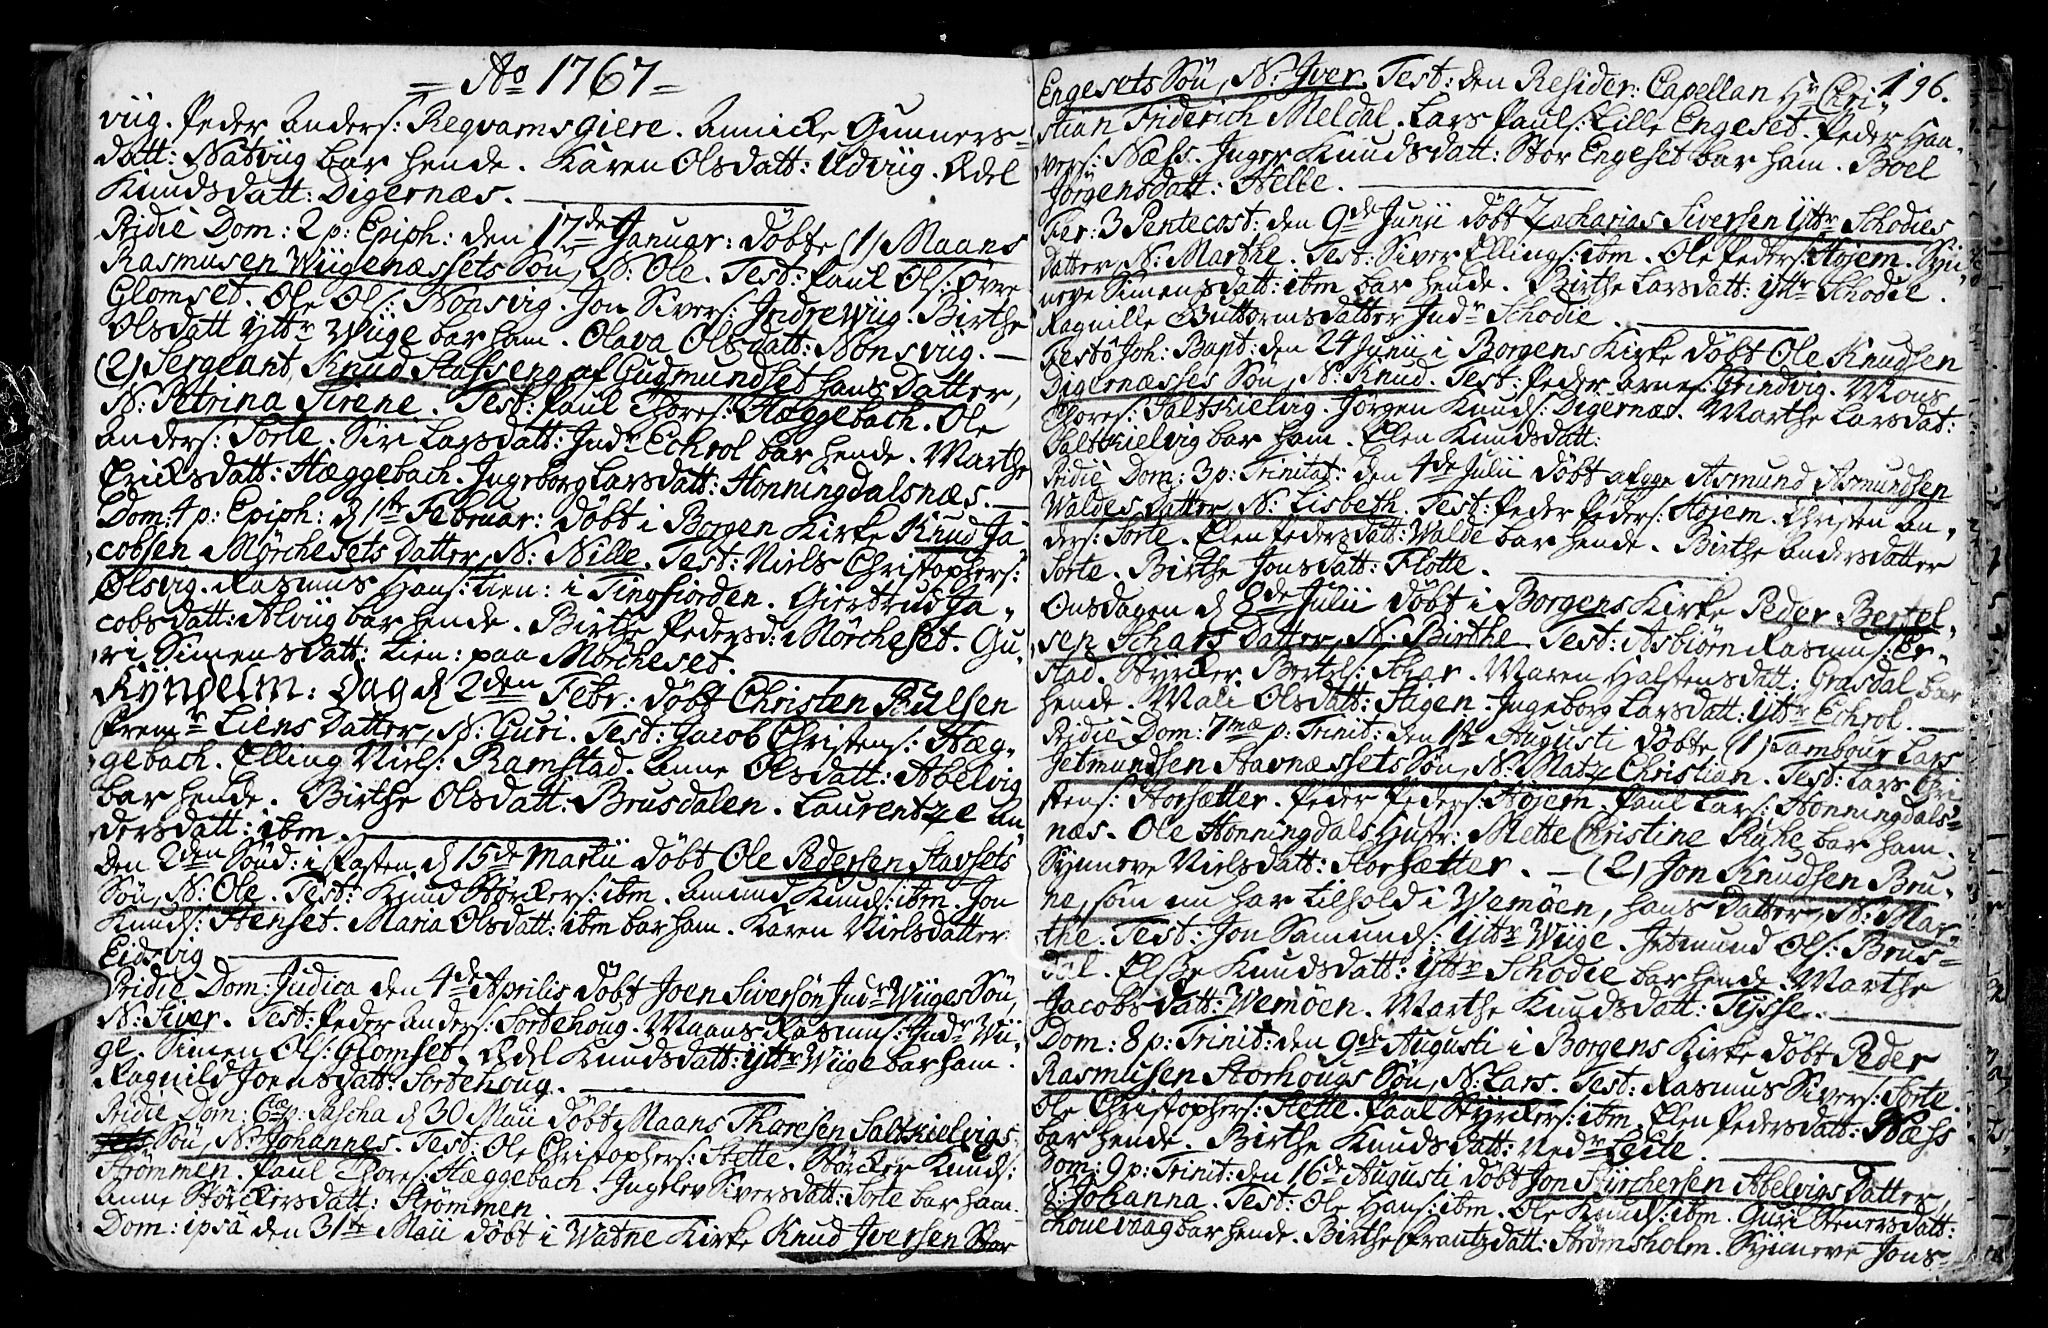 = Ao 1767 =
viig. Peder Anders: Reqvamsgiere. Annicke Gunners-
datt: Natviig bar hende. Karen Olsdatt: Udviig. Ædel
Knudsdatt: Digernæs.
Pridie Dom: 2 p: Epiph: den 17de Januar: döbte (1) Maans
Rasmusen Wiigenæssets Sön, N: Ole. Test: Paul Ols: Øvre
Glomset. Ole Ols: Nonsvig. Jon Sivers: Indre Wiig. Birthe
Olsdatt Yttr Wiige bar ham. Olava Olsdatt: Nonsviig. —
(2) Sergeant Knud Staffseng af Gudmundset hans Datter,
N: Petrina Sirene. Test: Paul Thores: Hæggebach. Ole
Anders: Sorte. Siri Larsdatt: Indr Echrol bar hende. Marthe
Ericksdatt: Hæggebach. Ingeborg Larsdatt: Honningdalsnæs. —
Dom: 4 p: Epiph: d 1ste Februar: döbt i Borgen Kirke Knud Ja-
cobsen Mörchesets Datter, N: Nille. Test: Niels Christophers:
Olsvig. Rasmus Hans: Lien: i Tingfiorden. Giertrud Ja-
cobsdatt: Alviig bar hende. Birthe Pedersd: Mörcheset. Gu-
ri Simensdatt: Lien: paa Mörcheset.
Kÿndelm: Dag d 2den Febr: döbt Christen Bulsen
Fremr Liens Datter, N: Guri. Test: Jacob Christens: Hæg-
gebach. Elling Niels: Ramstad. Anne Olsdatt: Abelvig
bar hende. Birthe Olsdatt: Brusdalen. Laurentze An-
dersdatt: ibm.
Den 2den Sönd: i Fasten d 15de Martii döbt Ole Pedersen Stavsets
Sön, N: Ole. Test: Knud Störckers: ibm. Amund Knuds: ibm. Jon
Knuds: Stenset. Maria Olsdatt: ibm bar ham. Karen Nielsdatter
Eidsvig.
Pridie Dom: Judica den 4de Aprilis döbt Joen Siversön Indr Wiiges Sön,
N: Siver. Test: Peder Anders: Sortehoug. Maans Rasmus: Indr Wii-
ge. Simen Ols: Glomset. Ædel Knudsdatt: Yttr Wiige bar ham.
Ragnild Joensdatt: Sortehoug.
Pridie Dom: 6tæ p: Pascha d 30 Maii döbt Maans Thoresen Saltkielvigs
Sön, N: Johannes. Test: Ole Christophers: Stette. Störcker Knuds:
Strömmen. Paul Thores: Hæggebach. Ingelev Siversdatt: Sorte bar ham.
Anne Störckersdatt: Strömmen
Dom: ipsâ den 31te Maii döbt i Watne Kirke Knud Iversen Stor
196.
Engesets Sön, N: Iver. Test: den Resider: Capellan Hr Chri-
stian Friderich Meldal. Lars Pauls: Lille Engeset. Peder Haa-
vers: Næss. Inger Knudsdatt: Stor Engeset bar ham. Boel
Jörgensdatt: Helle.
Fer: 3 Pentecost: den 9de Junii döbt Zacharias Siversen Yttr Schodies
Datter, N: Marthe. Test: Siver Ellings: ibm. Ole Peders: Höjem. Syn-
neve Simensdatt: ibm bar hende. Birthe Larsdatt: Yttr Schodie.
Ragnille Guttormsdatter Indr Schodie.
Festo Joh: Bapt: den 24 Junii i Borgens Kirke döbt Ole Knudsen
Digernæsses Sön, N: Knud. Test: Peder Arnes: Grindvig. Mons
Thores: Saltkielvig. Jörgen Knuds: Digernæs. Marthe Larsdat:
Saltkielvig bar ham. Elen Knudsdatt:
Pridie Dom: 3 p: Trinitat: den 4de Julii döbt afgge Asmund Asmundsen
Waldes Datter, N: Lisbeth. Test: Peder Peders: Höjem. Christen An-
ders: Sorte. Elen Pedersdatt: Walde bar hende. Birthe Andersdatter
Sorte. Birthe Jonsdatt: Flotte.
Onsdagen d 8de Julii döbt i Borgens Kirke Peder Bertel-
sen Schars Datter, N: Birthe. Test: Asbiörn Rasmus: Er-
stad. Styrcker Bertels: Schar. Maren Halstensdatt: Grasdal bar
hende. Mali Olsdatt: Hagen. Ingeborg Larsdatt: Yttr Echrol. —
Pridie Dom: 7mæ p: Trinit: den 1ste Augusti döbte (1) Tambour Lars
Jetmundsen Stavnæssets Sön, N: Matz Christian. Test: Lars Chri-
stens: Storsætter. Peder Peders: Höjem. Paul Lars: Honningdals-
næs. Ole Honningdals Hustr: Mette Christine Kühe bar ham.
Synneve Nielsdatt: Storsætter. — (2) Jon Knudsen Bru-
ne, som nu har tilhold i Wemöen, hans Datter, N: Mar-
the. Test: Jon Samunds: Yttr Wiige. Jetmund Ols: Brus-
dal. Elsze Knudsdatt: Yttr Schodie bar hende. Marthe
Jacobsdatt: Wemöen. Marthe Knudsdatt: Tysse.
Dom: 8 p: Trinit: den 9de Augusti i Borgens Kirke döbt Peder
Rasmusen Storhougs Sön, N: Lars. Test: Rasmus Sivers: Sorte.
Ole Christophers: Stette. Paul Styrckers: ibm. Elen Pedersdatt: Næss
bar hende. Birthe Knudsdatt: Nedr Leite.
Dom: 9 p: Trinit: den 16de Augusti döbt Jon Styrchersen Abelvigs Datter,
N: Johanna. Test: Ole Hans: ibm. Ole Knuds: ibm. Guri Stenersdatt:
Schouevaag bar hende. Birthe Frantzdatt: Strömsholm. Synneve Jons-